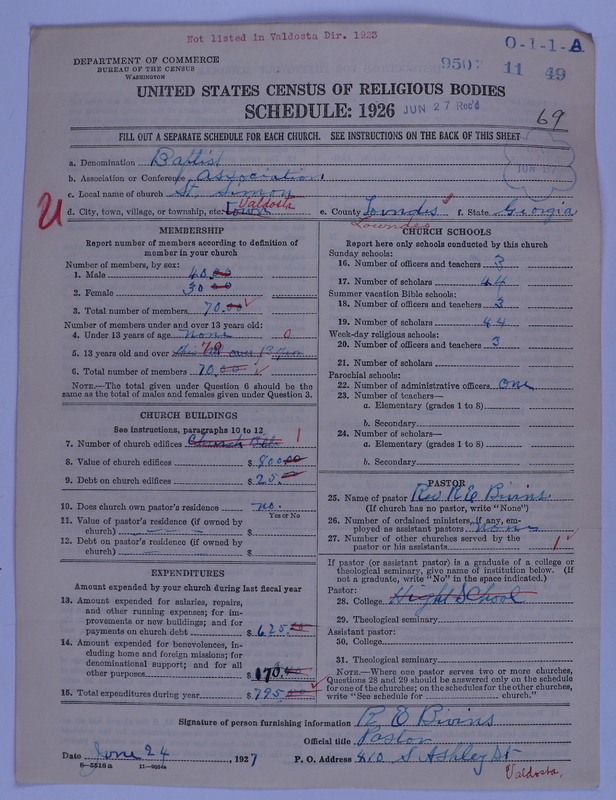 Not listed in Valdosta Dir. 1923
0-1-1-A
DEPARTMENT OF COMMERCE
BUREAU OF THE CENSUS
WASHINGTON
950: 11 49
UNITED STATES CENSUS OF RELIGIOUS BODIES
SCHEDULE: 1926
JUN 27 Rec'd
69
FILL OUT A SEPARATE SCHEDULE FOR EACH CHURCH. SEE INSTRUCTIONS ON THE BACK OF THIS SHEET
a. Denomination Baptist
b. Association or Conference Association
c. Local name of church St. Simon
U
d. City, town, village, or township, etc. Town Valdosta e. County Lowndes f. State Georgia
Lowndes
MEMBERSHIP
Report number of members according to definition of
member in your church
Number of members, by sex:
1. Male 40.00
2. Female 30.00
3. Total number of members 70.00
Number of members under and over 13 years old:
4. Under 13 years of age None 0
5. 13 years old and over 70
6. Total number of members 70.00
NOTE.—The total given under Question 6 should be the
same as the total of males and females given under Question 3.
CHURCH BUILDINGS
See instructions, paragraphs 10 to 12
7. Number of church edifices 1
8. Value of church edifices $ 800.00
9. Debt on church edifices $ 25.00
10. Does church own pastor's residence no.
Yes or No
11. Value of pastor's residence (if owned by
church) $
12. Debt on pastor's residence (if owned by
church) $
EXPENDITURES
Amount expended by your church during last fiscal year
13. Amount expended for salaries, repairs,
and other running expenses; for im-
provements or new buildings; and for
payments on church debt $ 625.00
14. Amount expended for benevolences, in-
cluding home and foreign missions; for
denominational support; and for all
other purposes $ 170.00
15. Total expenditures during year $ 795.00
CHURCH SCHOOLS
Report here only schools conducted by this church
Sunday schools:
16. Number of officers and teachers 3
17. Number of scholars 44
Summer vacation Bible schools:
18. Number of officers and teachers 3
19. Number of scholars 44
Week-day religious schools:
20. Number of officers and teachers 3
21. Number of scholars
Parochial schools:
22. Number of administrative officers one
23. Number of teachers—
a. Elementary (grades 1 to 8)
b. Secondary
24. Number of scholars—
a. Elementary (grades 1 to 8)
b. Secondary
PASTOR
25. Name of pastor Rev R E Bivins
(If church has no pastor, write "None")
26. Number of ordained ministers, if any, em-
ployed as assistant pastors None
27. Number of other churches served by the
pastor or his assistants 1
If pastor (or assistant pastor) is a graduate of a college or
theological seminary, give name of institution below. (If
not a graduate, write "No" in the space indicated.)
Pastor:
28. College Hight School
29. Theological seminary
Assistant pastor:
30. College
31. Theological seminary
NOTE.—Where one pastor serves two or more churches,
Questions 28 and 29 should be answered only on the schedule
for one of the churches; on the schedules for the other churches,
write "See schedule for church."
Signature of person furnishing information R E Bivins
Official title Pastor
Date June 24, 1927 P. O. Address 210 S. Ashley St
8-5518a 11-9554a
Valdosta,